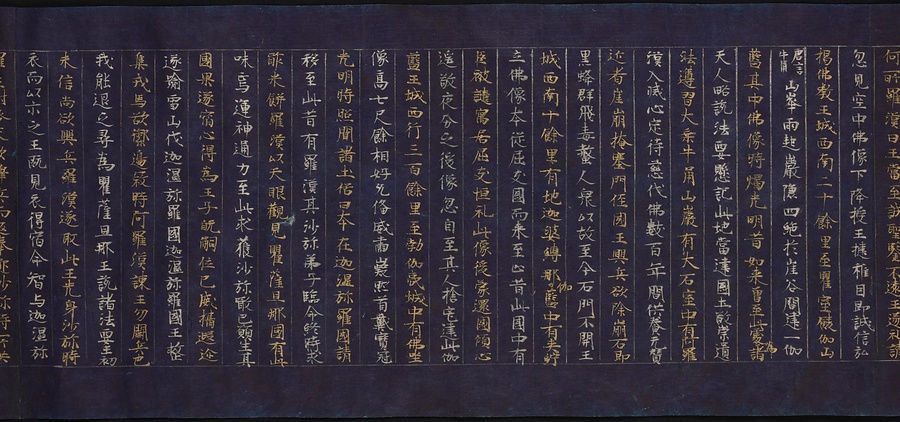 何所羅漢曰王嘗至誠聖鑒不遠王遂礼請
忽見空中佛像下降授王揵椎因即誠信弘
揭佛教王城西南二十餘里至瞿室餕伽山
唐言牛角山峯兩起巖隒四絕於崖谷間建一伽
藍其中佛像時燭光明昔如来曾至此處為諸
天人略說法要懸記此地當建國土敬崇遺
法遵習大乘牛角山巖有大石室中有阿羅
漢入滅心定待慈代佛數百年間供養無替
近者崖崩掩塞門徑國王興兵欲除崩石即
里蜂群飛毒螫人衆以故至今石門不開王
城西南十餘里有地迦婆縛那伽藍中有夾紵
立佛像本從屈支國而来至止昔此國中有
臣被譴寓居屈支恒礼此像後蒙還國傾心
遥敬夜分之後像忽自至其人捨宅建此伽
藍王城西行三百餘里至勃伽夷城中有佛坐
像高七尺餘相好允備威肅嶷然首戴寶冠
光明時照聞諸土俗曰本在迦濕弥羅國請
移至此昔有羅漢其沙弥弟子臨命終時求
酢米餅羅漢以天眼觀見瞿薩旦那國有此
味焉運神通力至此求獲沙弥噉已願生其
國果遂宿心得為王子既嗣位已威攝遐迩
遂踰雪山伐迦濕弥羅國迦濕弥羅國王整
集戎馬欲禦邊寇時阿羅漢諫王勿鬪兵也
我能退之尋為瞿薩旦那王說諸法要王初
未信尚欲興兵羅漢遂取此王先身沙弥時
衣而以示之王既見衣得宿命智与迦濕弥